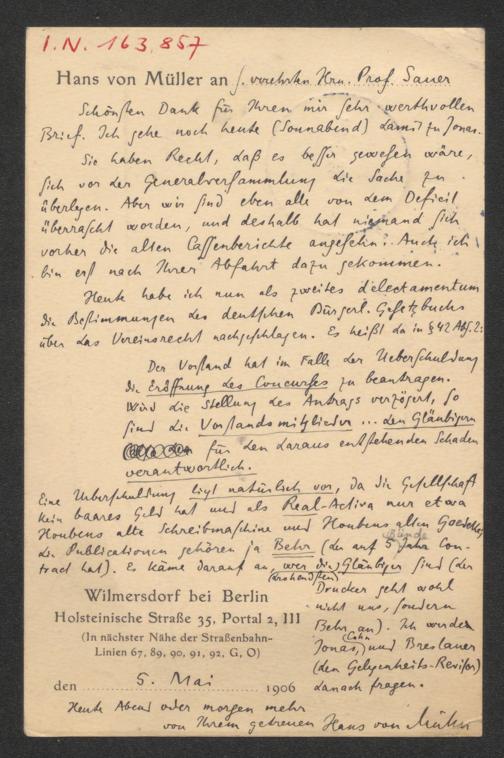 I.N. 163.857
Hans von Müller an s. verehrten Hrn. Prof. Sauer
Schönsten Dank für Ihren mir sehr werthvollen
Brief. Ich gehe noch heute (Sonnabend) damit zu Jonas.
Sie haben Recht, daß es besser gewesen wäre,
sich vor der Generalversammlung die Sache zu
überlegen. Aber wir sind eben alle von dem Deficit
überrascht worden, und deshalb hat niemand sich
vorher die alten Cassenberichte angesehn. Auch ich
bin erst nach Ihrer Abfahrt dazu gekommen.
Heute habe ich nun als zweites delectamentum
die Bestimmungen des deutschen Bürgerl. Gesetzbuchs
über das Vereinsrecht nachgeschlagen. Es heißt da in § 42 Abs. 2:
Der Vorstand hat im Falle der Ueberschuldung
die Eröffnung des Concurses zu beantragen.
Wird die Stellung des Antrags verzögert, so
sind die Vorstandsmitglieder ... den Gläubigern
für den daraus entstehenden Schaden
verantwortlich.
Eine Ueberschuldung liegt natürlich vor, da die Gesellschaft
kein baares Geld hat und als Real-Activa nur etwa
Houbens alte Schreibmaschine und Houbens alten Goedeke,
die Publicationen gehören ja Behr (der auf 5 Jahre Con-
tract hat). Es käme darauf an, wer die (drohendsten) Gläubiger sind (der
Drucker geht wohl
nicht uns, sondern
Behr an). Ich werde
Jonas, (Cohn) und Breslauer
(den Gelegenheits-Revisor)
danach fragen.
Wilmersdorf bei Berlin
Holsteinische Straße 35, Portal 2, III
(In nächster Nähe der Straßenbahn-
Linien 67, 89, 90, 91, 92, G, O)
den 5. Mai 1906
Heute Abend oder morgen mehr
von Ihrem getreuen Hans von Müller